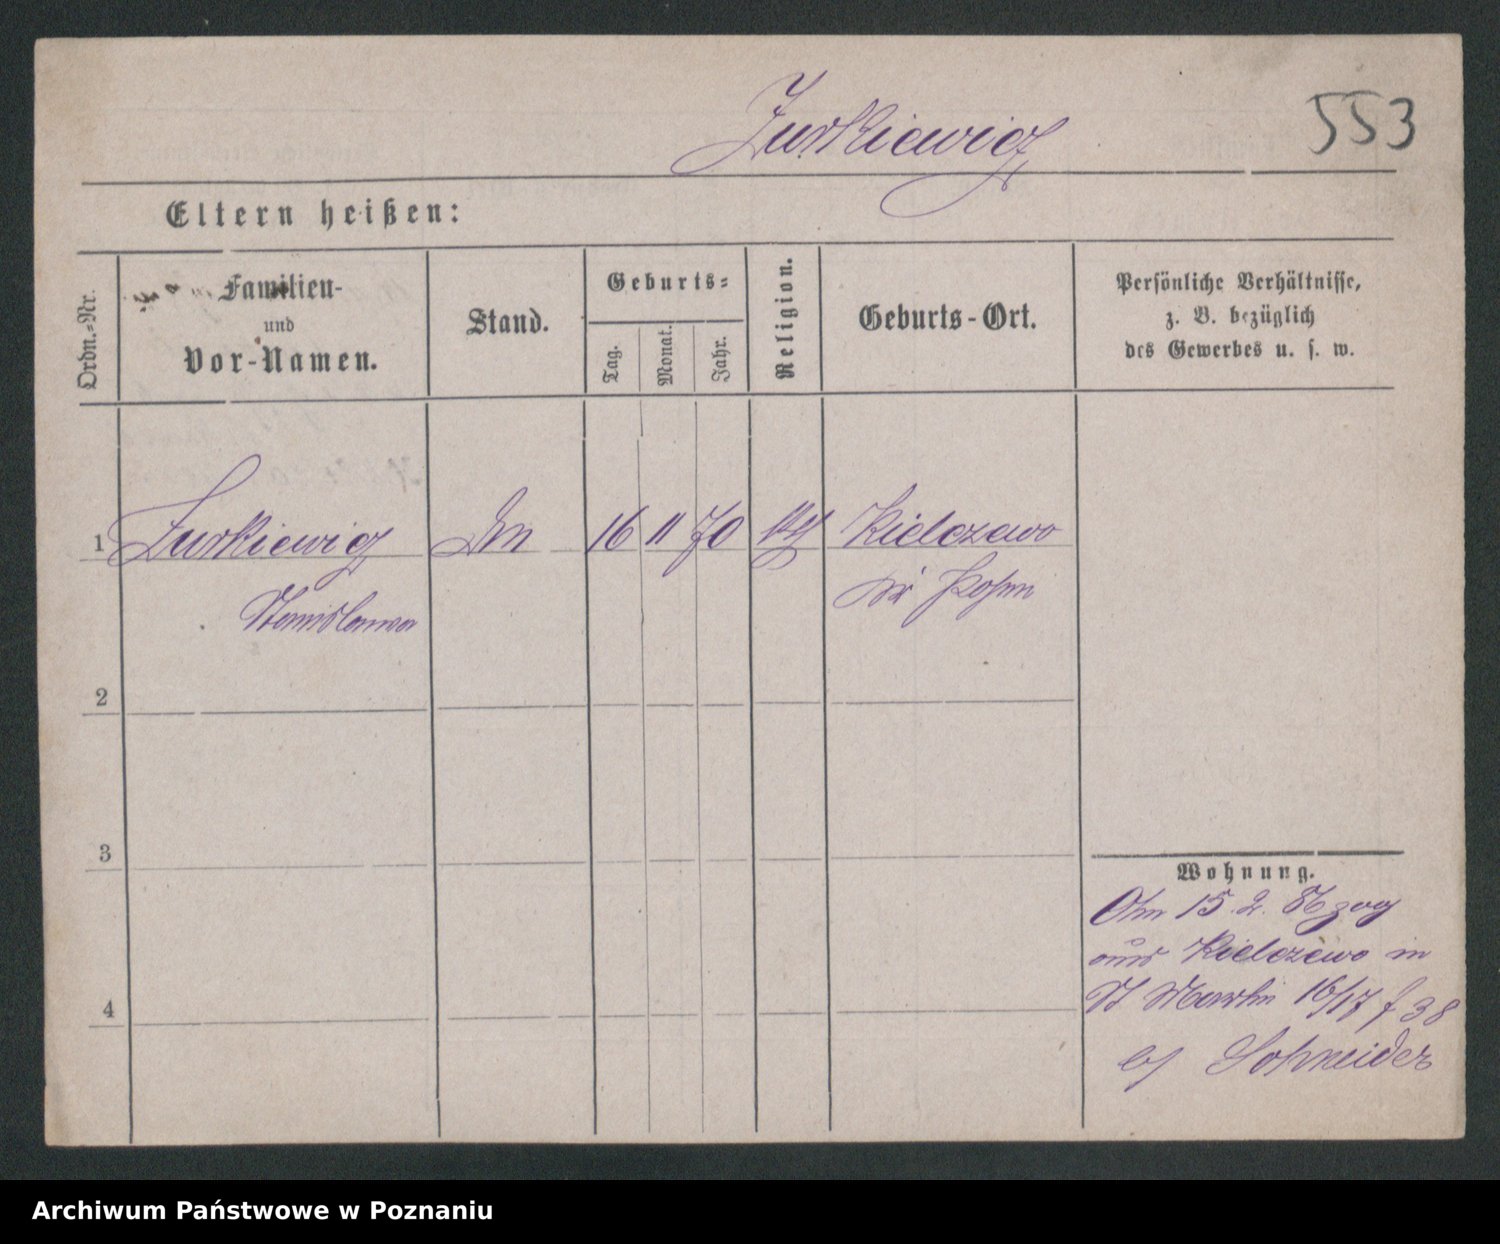 Zurkiewicz
553
Eltern heißen:
Ordn.-Nr.
Familien-
und
Vor-Namen.
Stand.
Geburts-
Tag.
Monat.
Jahr.
Religion.
Geburts-Ort.
Persönliche Verhältnisse,
z. B. bezüglich
des Gewerbes u. s. w.
1 Zurkiewicz 16 11 70 Kielczewo
Stanislawa Kr Posen
2
3
4
Wohnung.
Am 15. 2. 86 zog
aus Kielczewo in
St Martin 16/17 f 38
bei Schneider
Archiwum Państwowe w Poznaniu